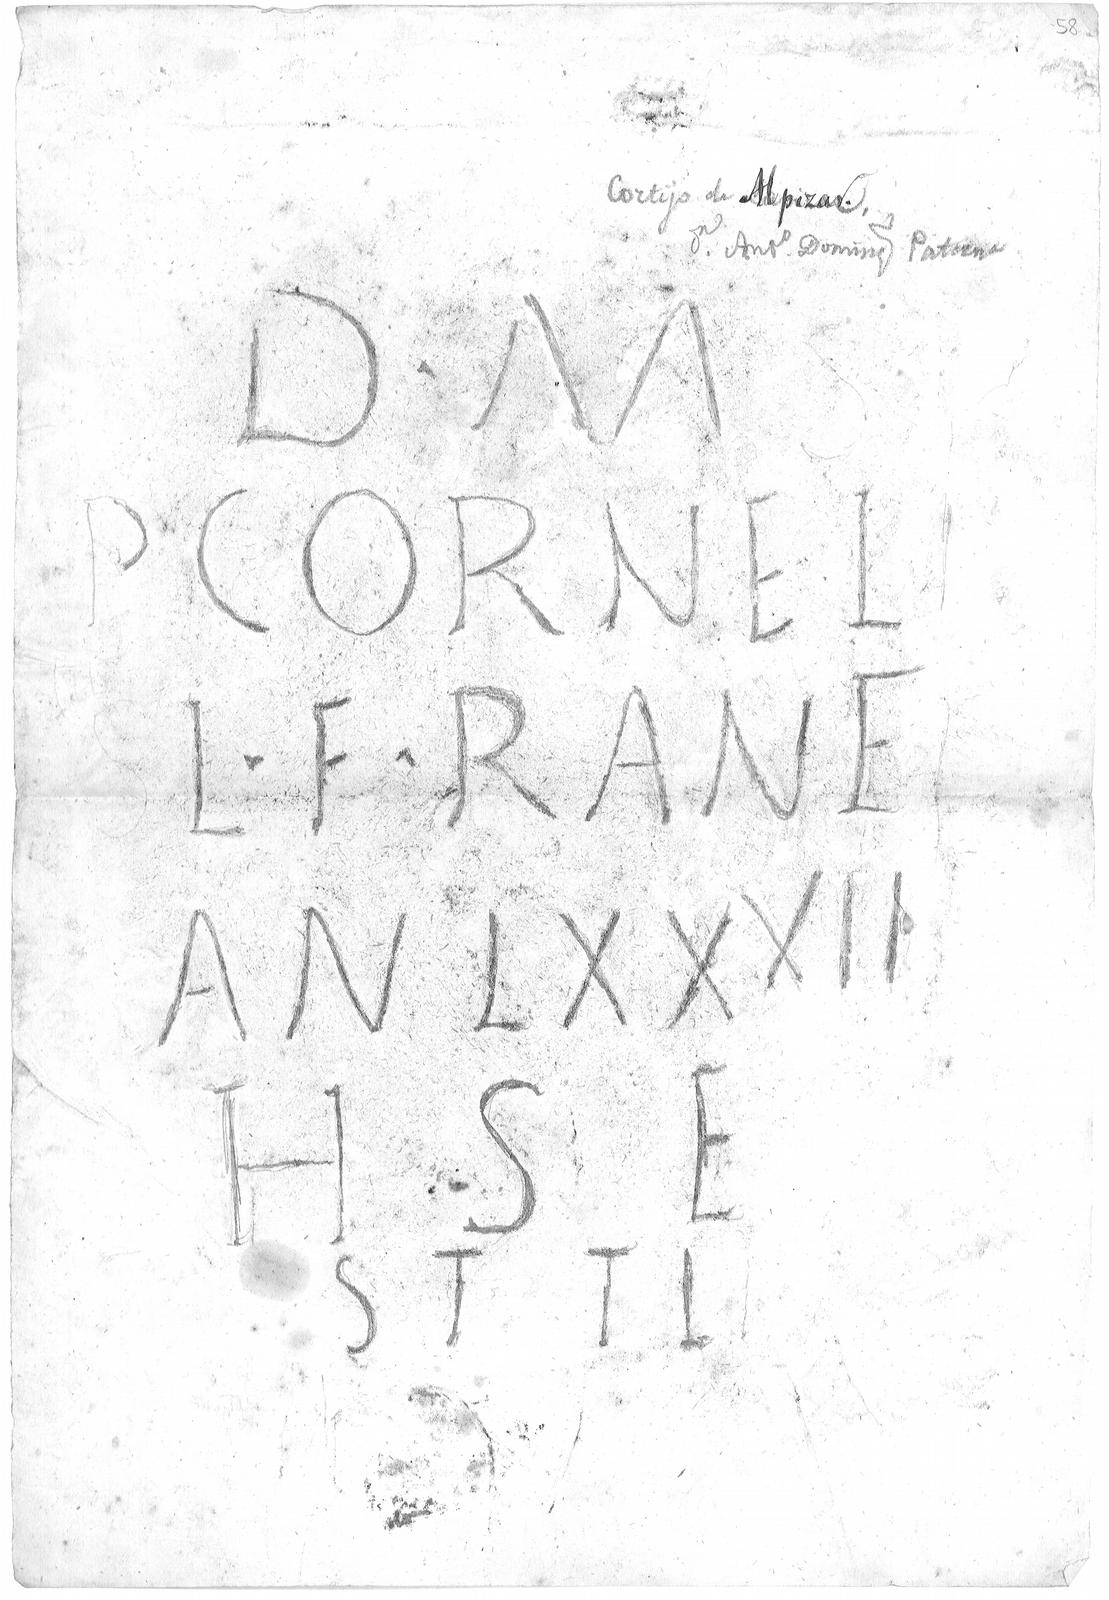 58
Cortijo de Alpizar,
Antº. Doming Paterna
D · M
P CORNELI
L · F · RANE
AN LXXXII
H S E
S T T L